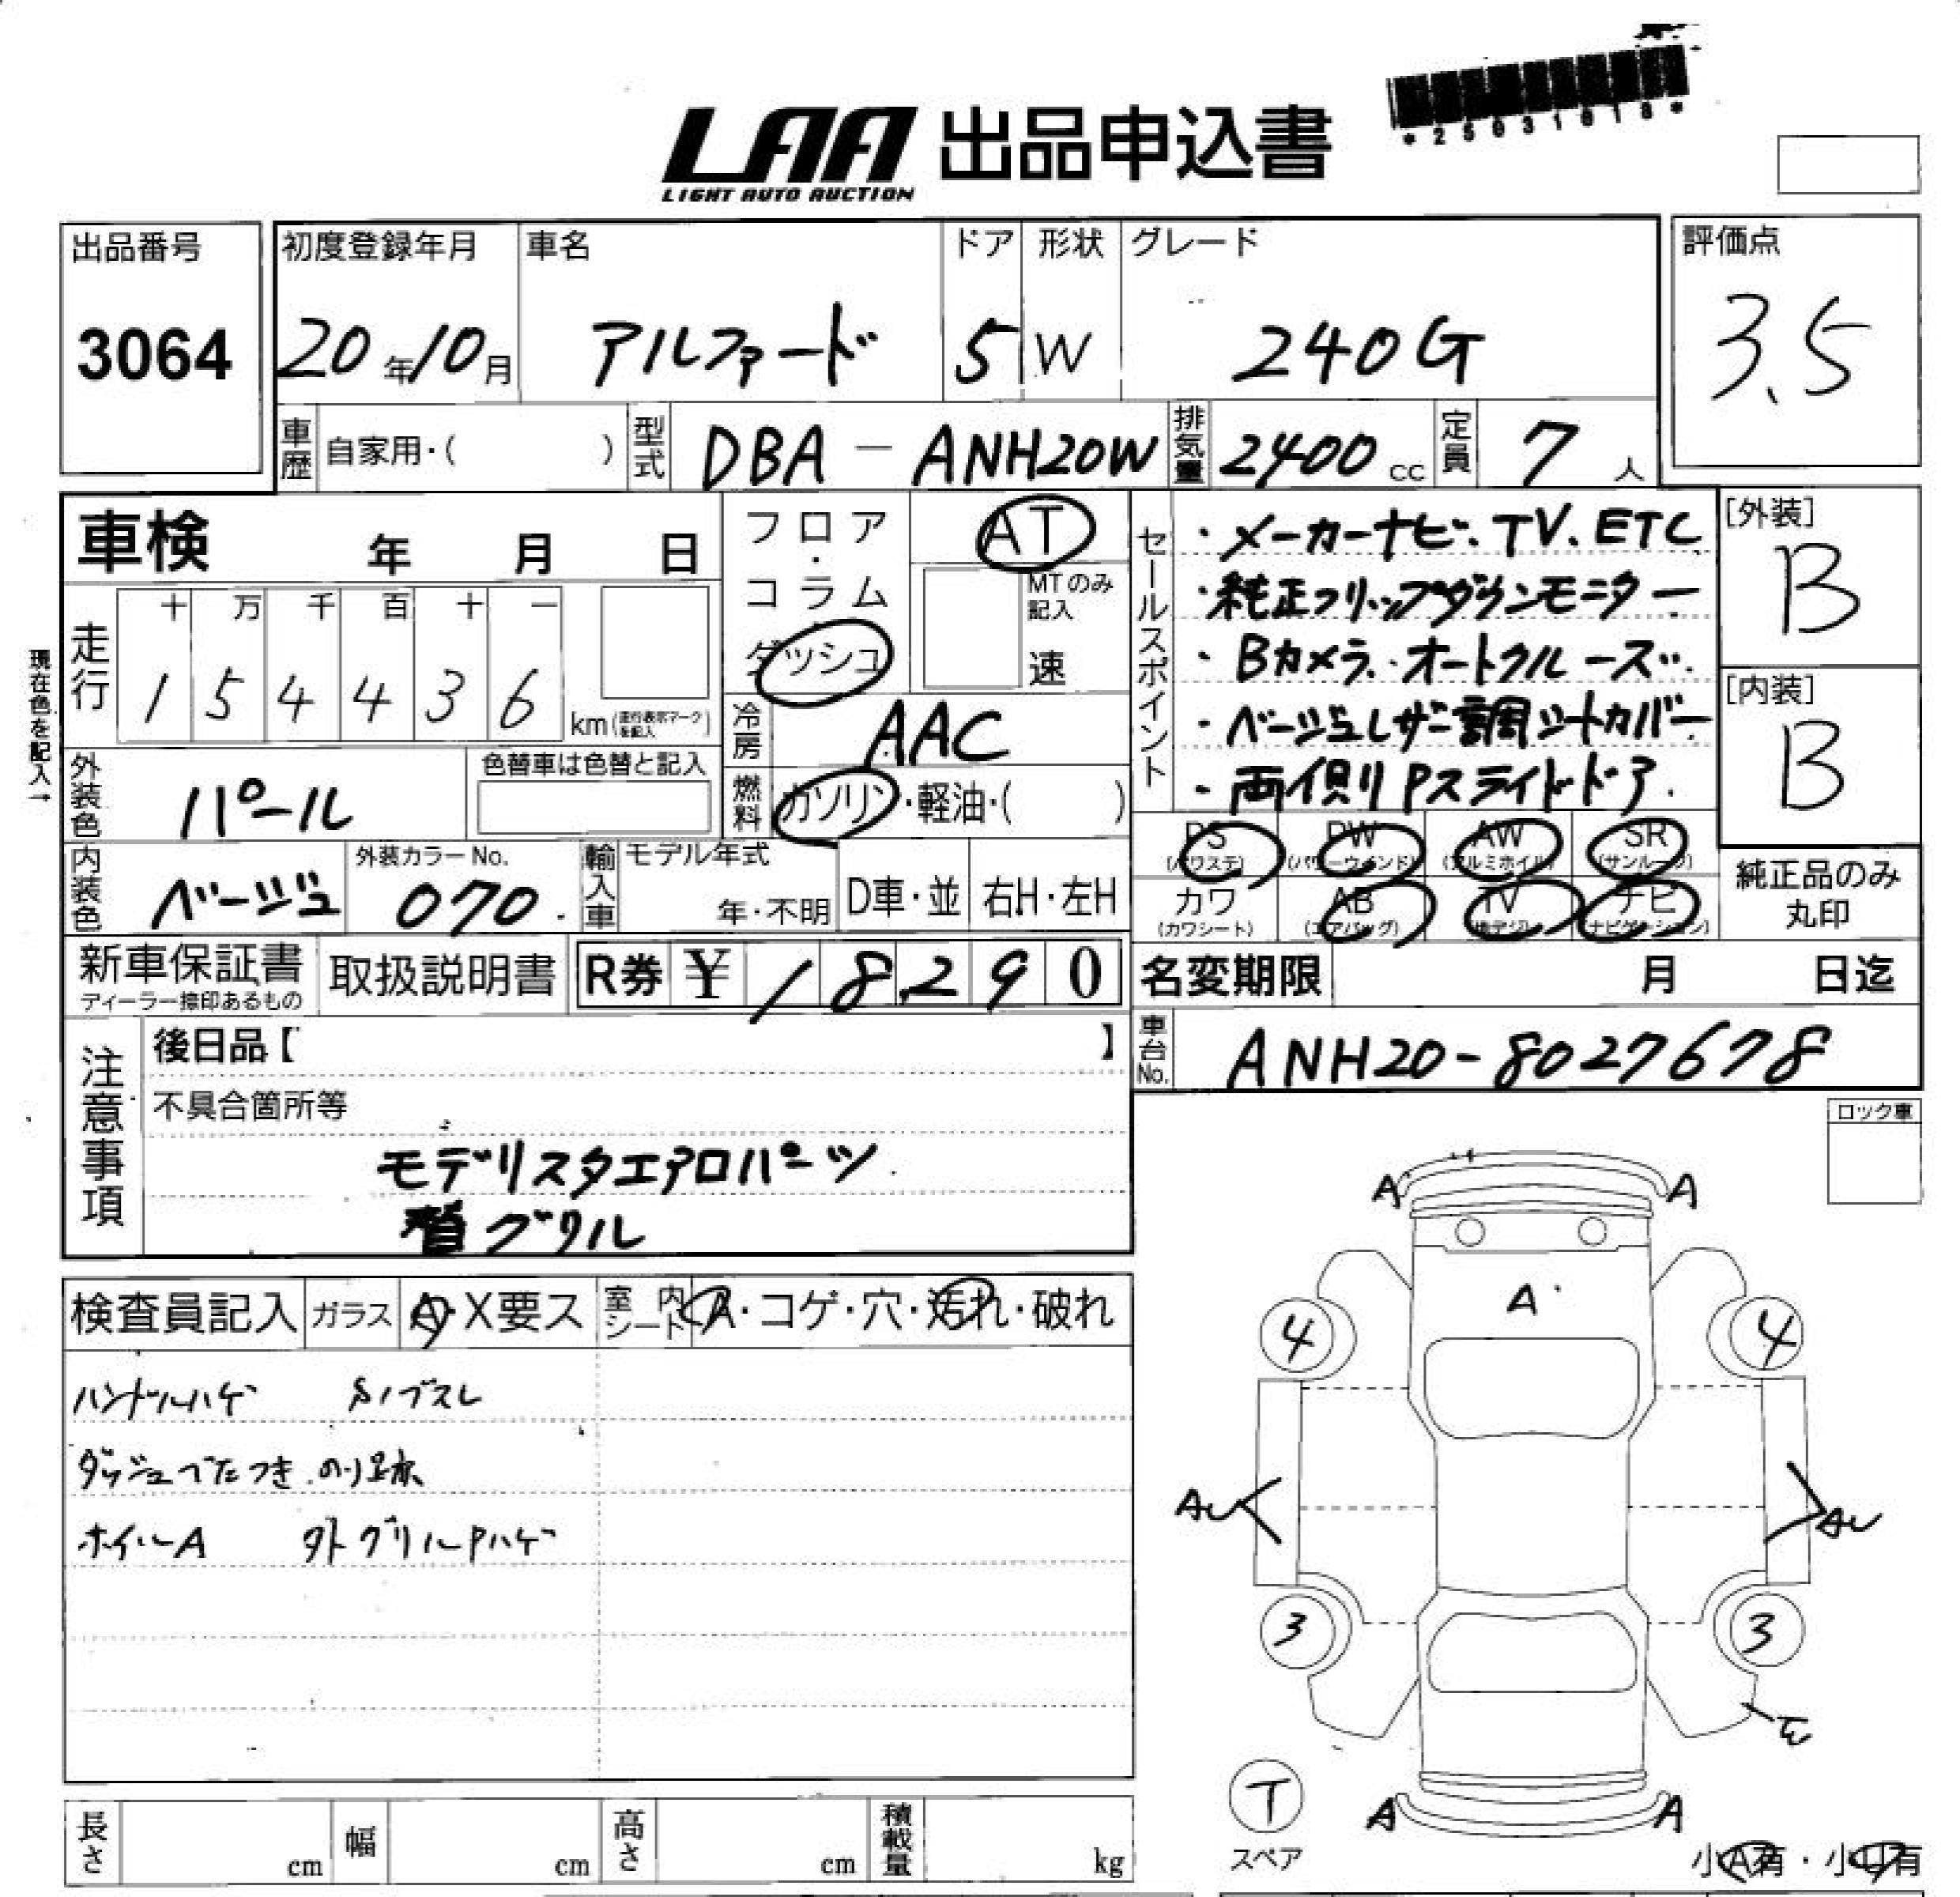 LAA 出品申込書
LIGHT AUTO AUCTION
*25031018*
出品番号
3064
初度登録年月
20年10月
車名
アルファード
ドア
5
形状
W
グレード
240G
評価点
3.5
車歴 自家用・( )
型式 DBA-ANH20W
排気量 2400cc
定員 7人
車検 年 月 日
フロア・コラム
ダッシュ
AT
MTのみ記入
速
走行
十 万 千 百 十 一
1 5 4 4 3 6 km (走行表示マークを記入)
現在色を記入→
冷房 AAC
外装色 パール
色替車は色替と記入
燃料 ガソリン・軽油・( )
内装色 ベージュ
外装カラーNo.
070
輸入車 モデル年式
年・不明 D車・並 右H・左H
セールスポイント
・メーカーナビ、TV、ETC
・純正フリップダウンモニター
・Bカメラ、オートクルーズ
・ベージュレザー調シートカバー
・両側Pスライドドア
[外装]
B
[内装]
B
PS (パワステ) PW (パワーウィンド) AW (アルミホイル) SR (サンルーフ)
カワ (カワシート) AB (エアバッグ) TV (地デジ) ナビ (ナビゲーション)
純正品のみ
丸印
新車保証書
ディーラー捺印あるもの
取扱説明書
R券 ¥18,290
名変期限 月 日迄
車台No. ANH20-8027678
注意事項
後日品【 】
不具合箇所等
モデリスタエアロパーツ
グリル
ロック車
検査員記入 ガラス A・X要ス 室内シート A・コゲ・穴・汚れ・破れ
ハンドルハゲ Sノブスレ
ダッシュべたつき のり跡
ホイールA 外グリルPハゲ
A A
A
4 4
AU AU
3 3
E
T
スペア
A A
小A有・小U有
長さ cm 幅 cm 高さ cm 積載量 kg